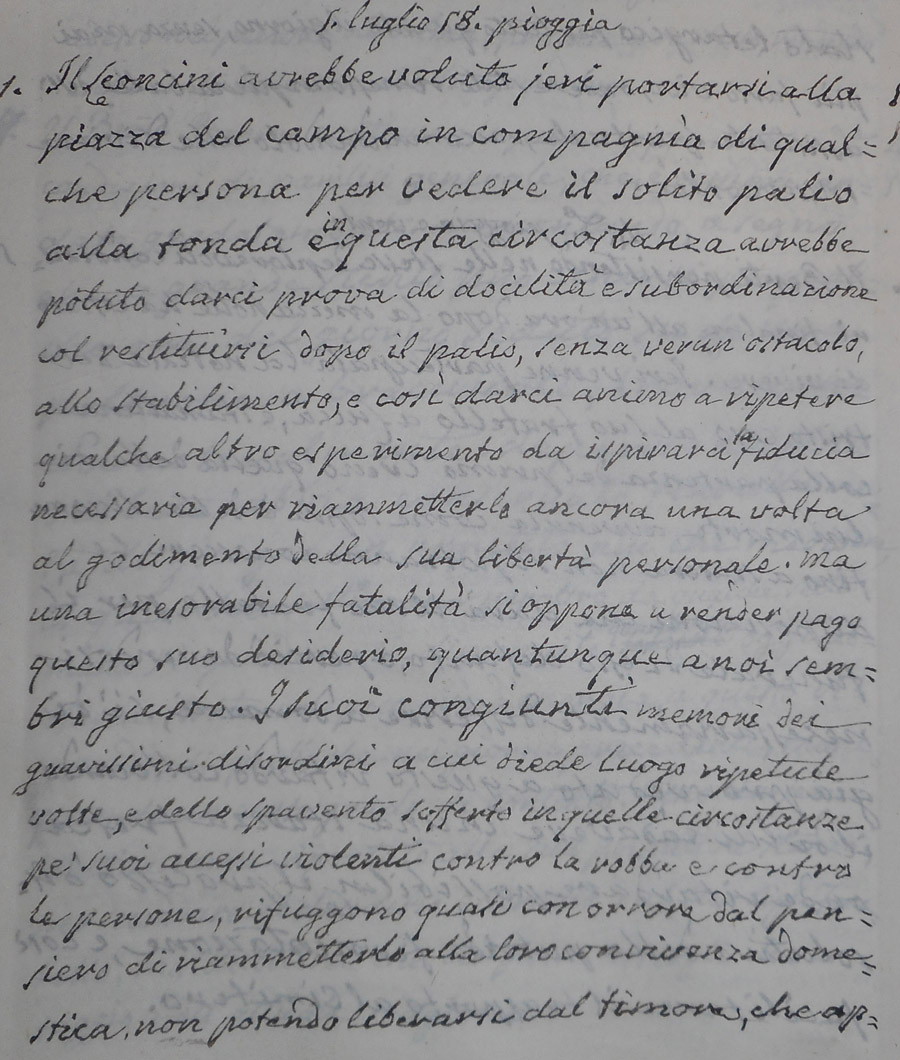 5. luglio 58. pioggia
1. Il Leoncini avrebbe voluto jeri portarsi alla
piazza del campo in compagnia di qual=
che persona per vedere il solito palio
alla tonda e in questa circostanza avrebbe
potuto darci prova di docilità e subordinazione
col restituirsi dopo il palio, senza verun'ostacolo,
allo stabilimento, e così darci animo a ripetere
qualche altro esperimento da ispirarci la fiducia
necessaria per riammetterlo ancora una volta
al godimento della sua libertà personale. Ma
una inesorabile fatalità si oppone a render pago
questo suo desiderio, quantunque a noi sem=
bri giusto. I suoi congiunti memori dei
gravissimi disordini a cui diede luogo ripetute
volte, e dello spavento sofferto in quelle circostanze
pe' suoi accessi violenti contro la robba e contro
le persone, rifuggono quasi con orrore dal pen=
siero di riammetterlo alla loro convivenza dome=
stica, non potendo liberarsi dal timore, che ap=